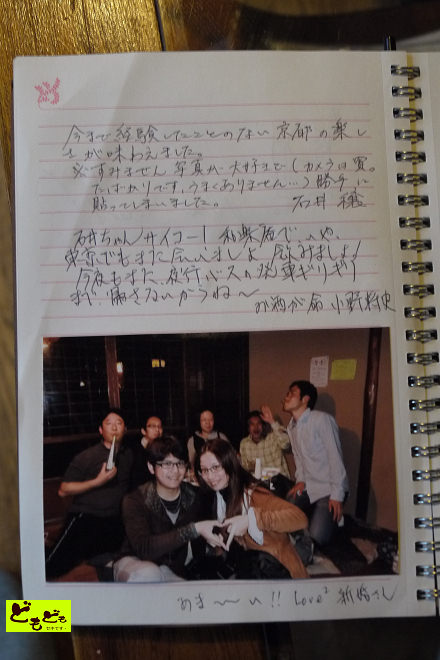 今まで経験したことのない京都の楽し
さが味わえました。
すみません 写真が大好きで(カメラは買っ
たばかりです、うまくありません…)勝手に
貼ってしまいました。 石井
石井ちゃん サイコー!
東京でもまた会いましょ、飲みましょ!
今夜もまた、夜行バスの発車ギリギリ
まで、帰さないからね〜
お酒が命 小野
あま〜い!! Love² 新婚さん
どもども